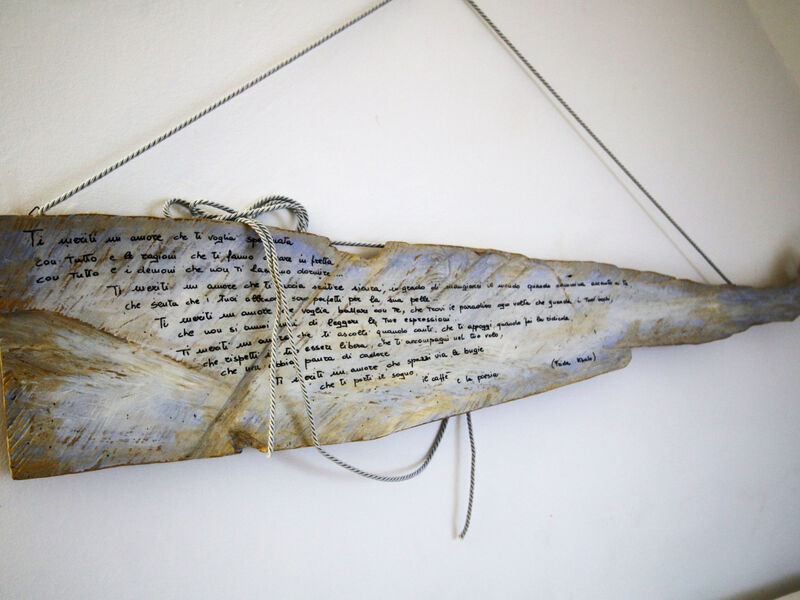 Ti meriti un amore che ti voglia spettinata
con tutto e le ragioni che ti fanno alzare in fretta
con tutto e i demoni che non ti lasciano dormire...
Ti meriti un amore che ti faccia sentire sicura, in grado di mangiarsi il mondo quando cammina accanto a te
che senta che i tuoi abbracci sono perfetti per la sua pelle
Ti meriti un amore che voglia ballare con te, che trovi il paradiso ogni volta che guarda i tuoi occhi,
che non si annoi mai di leggere le tue espressioni
Ti meriti un amore che ti ascolti quando canti, che ti appoggi quando fai la ridicola
che rispetti il tuo essere libera, che ti accompagni nel tuo volo,
che non abbia paura di cadere
Ti meriti un amore che spazzi via le bugie
che ti porti il sogno, il caffè e la poesia
(Frida Khalo)